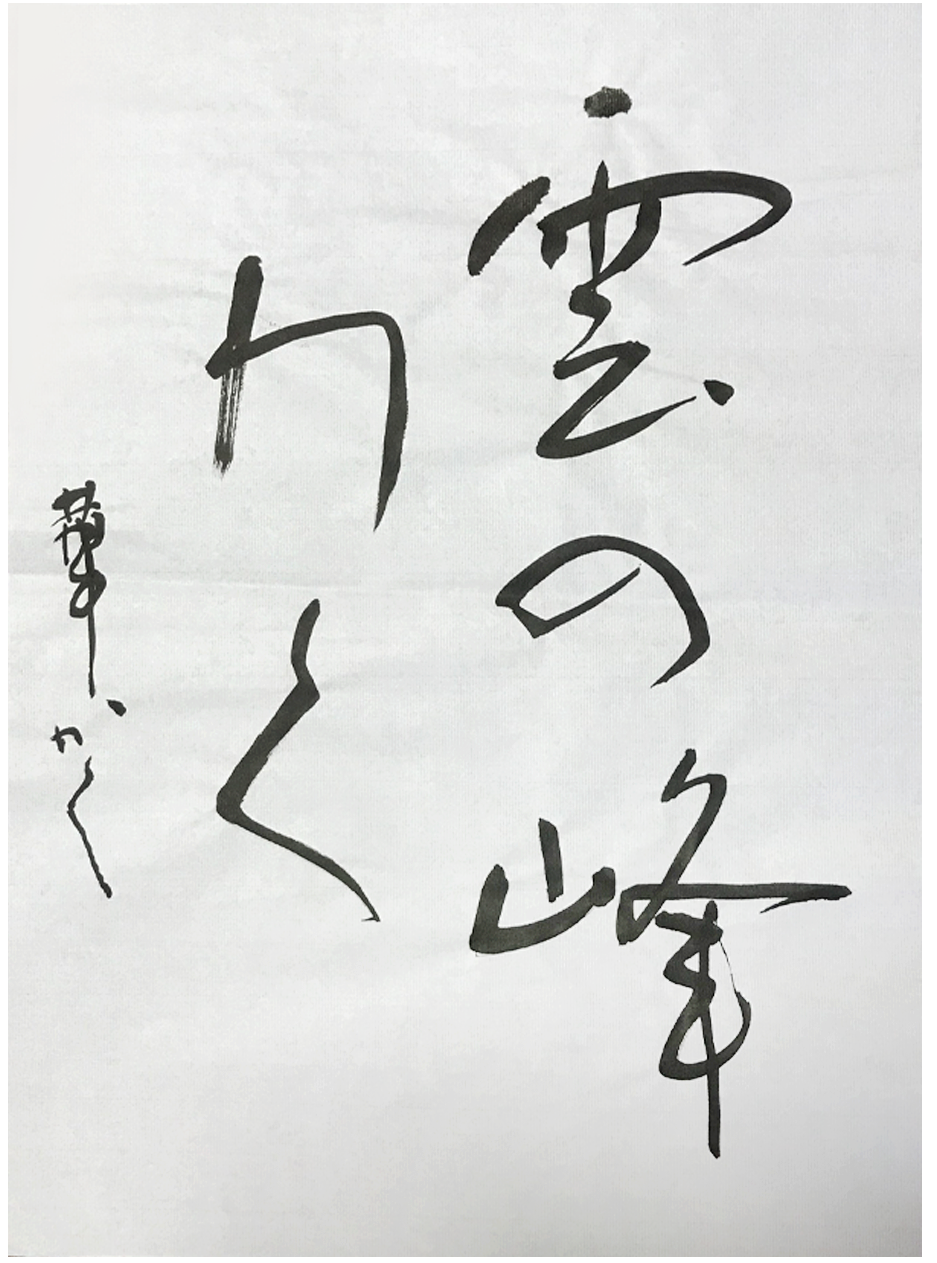 雲の峰
わく
華かく